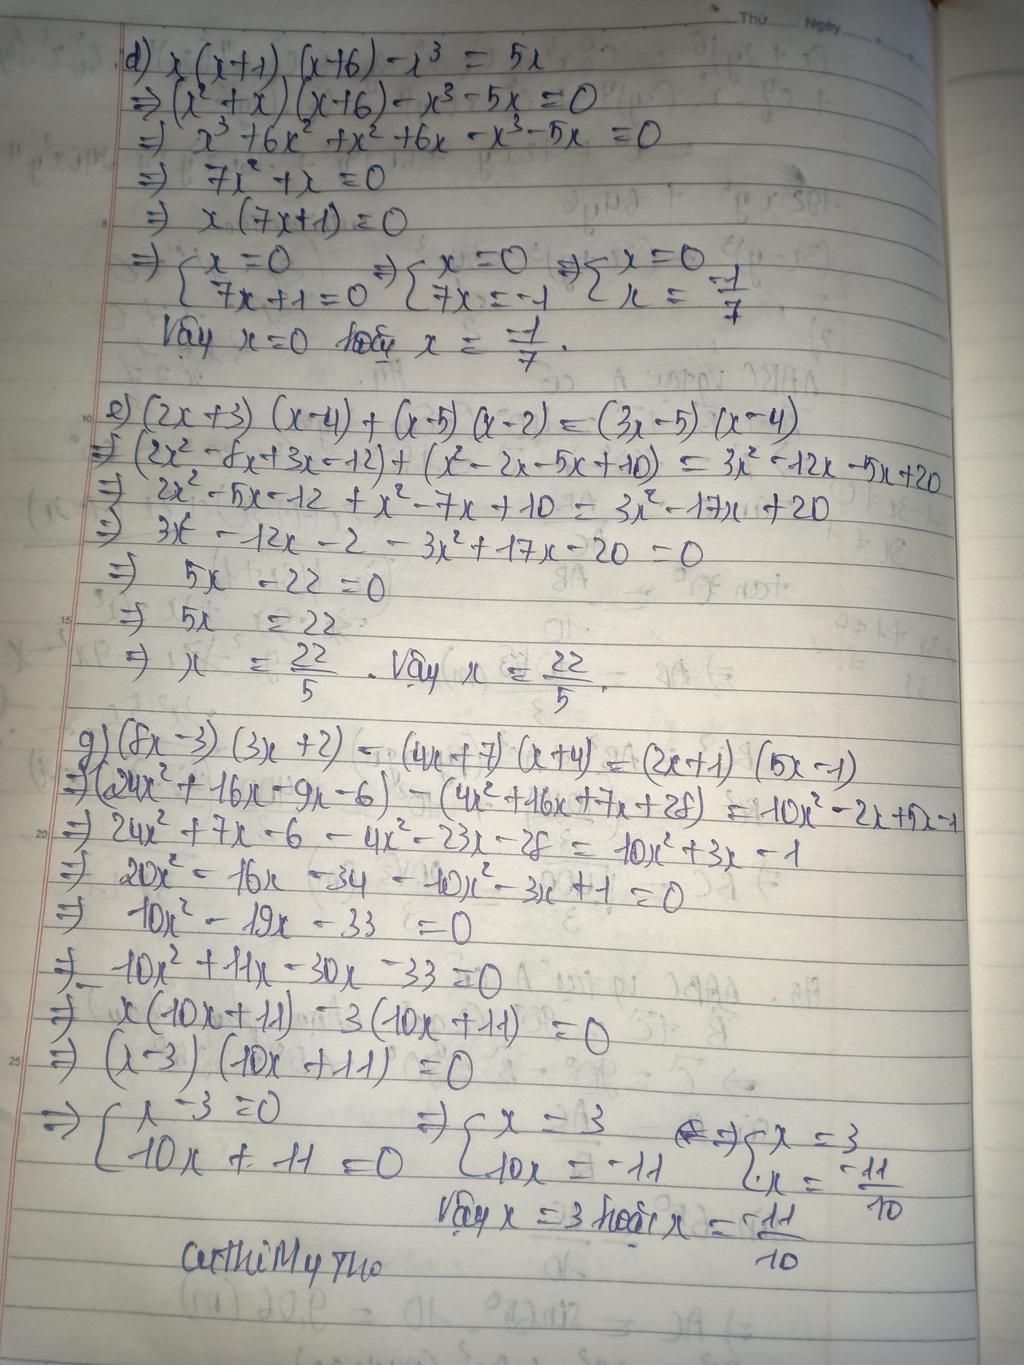 Thứ....... Ngày.......
d) x(x+1)(x+6) - x³ = 5x
=> (x² + x)(x+6) - x³ - 5x = 0
=> x³ + 6x² + x² + 6x - x³ - 5x = 0
=> 7x² + x = 0
=> x(7x+1) = 0
=> { x = 0 => { x = 0 => { x = 0
7x + 1 = 0 7x = -1 x = -1/7
Vậy x = 0 hoặc x = -1/7.
e) (2x + 3)(x - 4) + (x - 5)(x - 2) = (3x - 5)(x - 4)
=> (2x² - 8x + 3x - 12) + (x² - 2x - 5x + 10) = 3x² - 12x - 5x + 20
=> 2x² - 5x - 12 + x² - 7x + 10 = 3x² - 17x + 20
=> 3x² - 12x - 2 - 3x² + 17x - 20 = 0
=> 5x - 22 = 0
=> 5x = 22
=> x = 22/5. Vậy x = 22/5.
g) (8x - 3)(3x + 2) - (4x + 7)(x + 4) = (2x + 1)(5x - 1)
=> (24x² + 16x - 9x - 6) - (4x² + 16x + 7x + 28) = 10x² - 2x + 5x - 1
=> 24x² + 7x - 6 - 4x² - 23x - 28 = 10x² + 3x - 1
=> 20x² - 16x - 34 - 10x² - 3x + 1 = 0
=> 10x² - 19x - 33 = 0
=> 10x² + 11x - 30x - 33 = 0
=> x(10x + 11) - 3(10x + 11) = 0
=> (x - 3)(10x + 11) = 0
=> { x - 3 = 0 => { x = 3 => { x = 3
10x + 11 = 0 10x = -11 x = -11/10
Vậy x = 3 hoặc x = -11/10
CuthiMyTho